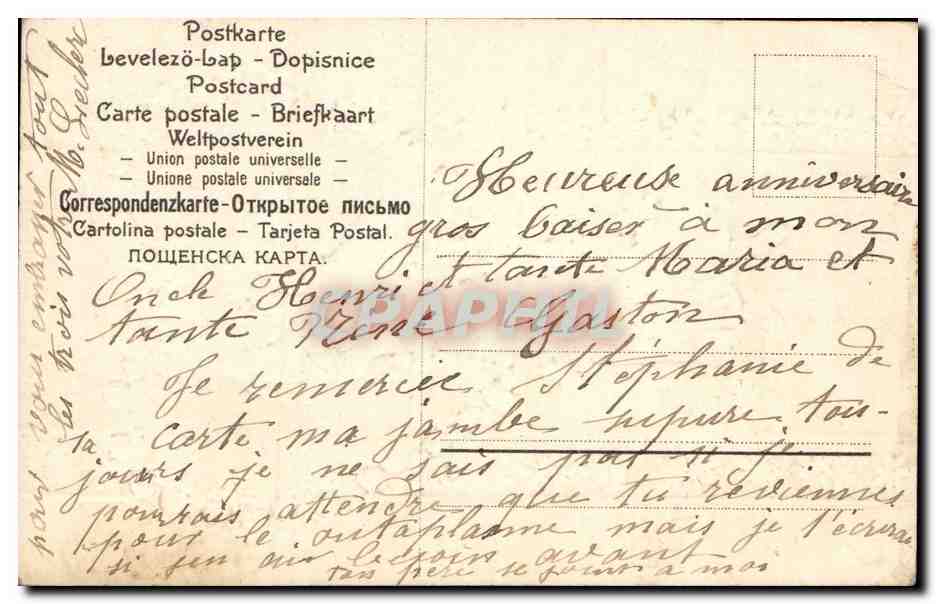 Postkarte
Levelezö-Lap - Dopisnice
Postcard
Carte postale - Briefkaart
Weltpostverein
- Union postale universelle -
- Unione postale universale -
Correspondenzkarte-Открытое письмо
Cartolina postale - Tarjeta Postal.
ПОЩЕНСКА КАРТА.
Heureuse anniversaire
gros baiser à mon
Oncle Henri et tante Maria et
tante René Gaston
Je remercie Stéphanie de
sa carte ma jambe supure tou-
jours je ne sais pas si je
pourrais attendre que tu reviennes
pour le cataplasme mais je t'écrirai
si j'en ai besoin avant
ton père se joint a moi
pour vous embrasser tout
les trois votre M.
CPAPHIL